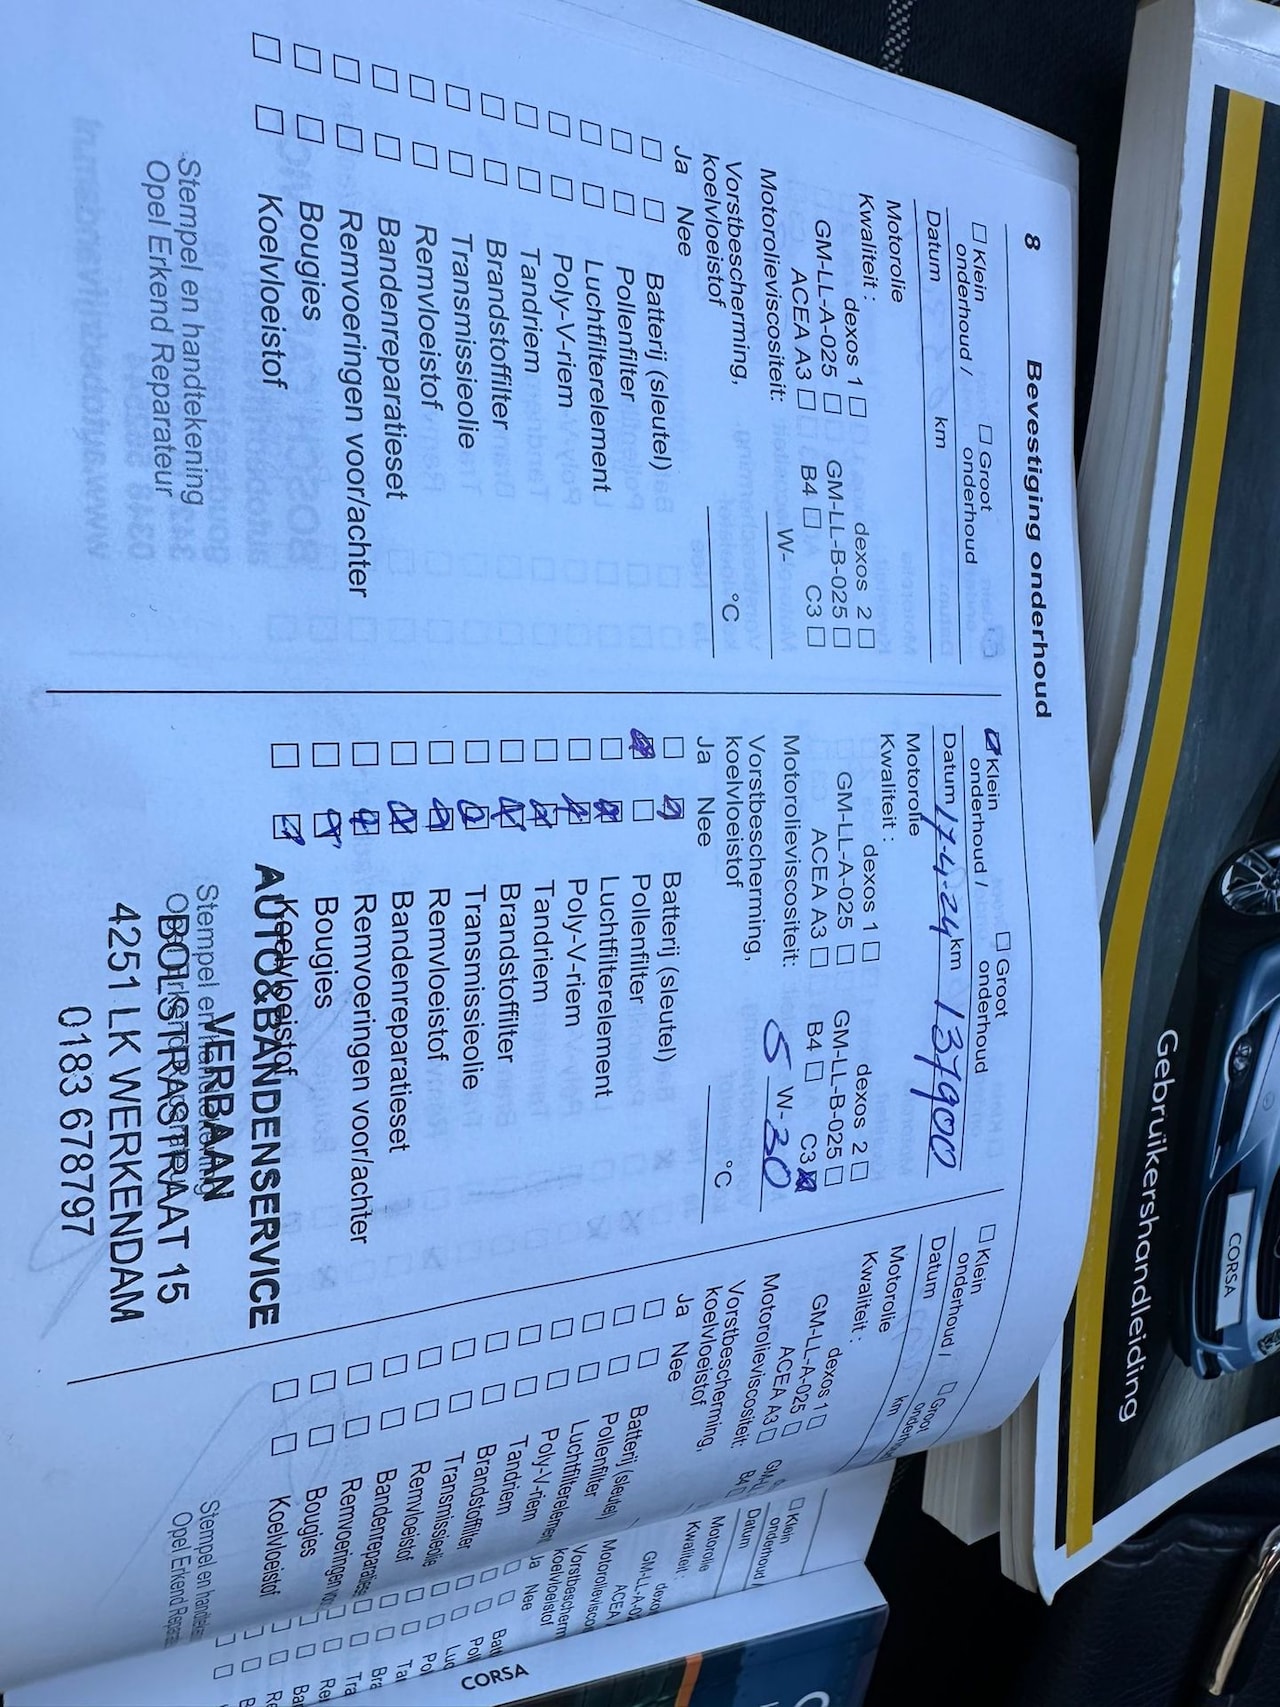 8 Bevestiging onderhoud
Klein onderhoud /
Groot onderhoud
Datum km
Motorolie
Kwaliteit :
dexos 1 dexos 2
GM-LL-A-025 GM-LL-B-025
ACEA A3 B4 C3
Motorolieviscositeit: W-
Vorstbescherming,
koelvloeistof °C
Ja Nee
Batterij (sleutel)
Pollenfilter
Luchtfilterelement
Poly-V-riem
Tandriem
Brandstoffilter
Transmissieolie
Remvloeistof
Bandenreparatieset
Remvoeringen voor/achter
Bougies
Koelvloeistof
Stempel en handtekening
Opel Erkend Reparateur
Klein onderhoud /
Groot onderhoud
Datum 17-4-24 km 137900
Motorolie
Kwaliteit :
dexos 1 dexos 2
GM-LL-A-025 GM-LL-B-025
ACEA A3 B4 C3
Motorolieviscositeit: 5 W-30
Vorstbescherming,
koelvloeistof °C
Ja Nee
Batterij (sleutel)
Pollenfilter
Luchtfilterelement
Poly-V-riem
Tandriem
Brandstoffilter
Transmissieolie
Remvloeistof
Bandenreparatieset
Remvoeringen voor/achter
Bougies
Koelvloeistof
AUTO&BANDENSERVICE
VERBAAN
BOLSTRASTRAAT 15
4251 LK WERKENDAM
0183 678797
Stempel en
Klein onderhoud /
Groot
Datum km
Motorolie
Kwaliteit :
dexos 1
GM-LL-A-025
ACEA A3 B4
Motorolieviscositeit:
Vorstbescherming,
koelvloeistof
Ja Nee
Batterij (sleutel)
Pollenfilter
Luchtfilterelement
Poly-V-riem
Tandriem
Brandstoffilter
Transmissieolie
Remvloeistof
Bandenreparaties
Remvoeringen
Bougies
Koelvloeistof
Stempel en
Opel Erkend
Klein
onderhoud /
Datum
Motorolie
Kwaliteit :
GM-LL-A-02
ACEA
koelvloeistof
Ja Nee
Gebruikershandleiding
CORSA
CORSA